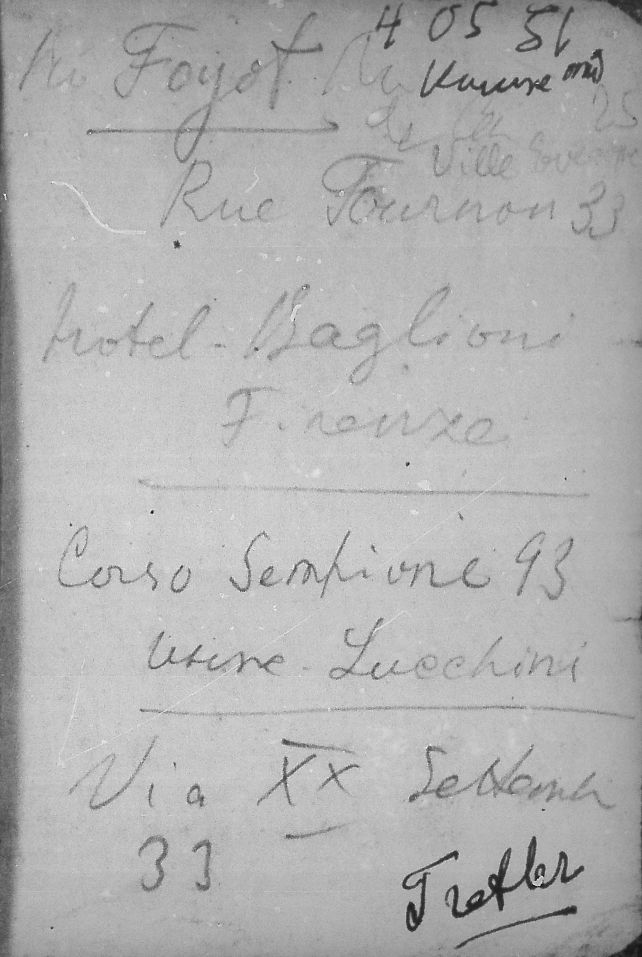 4 05 51
Foyot
25
Ville
Rue Tournon 33
Hotel - Baglioni
Firenze
Corso Sempione 93
Usine - Lucchini
Via XX Settemb
33